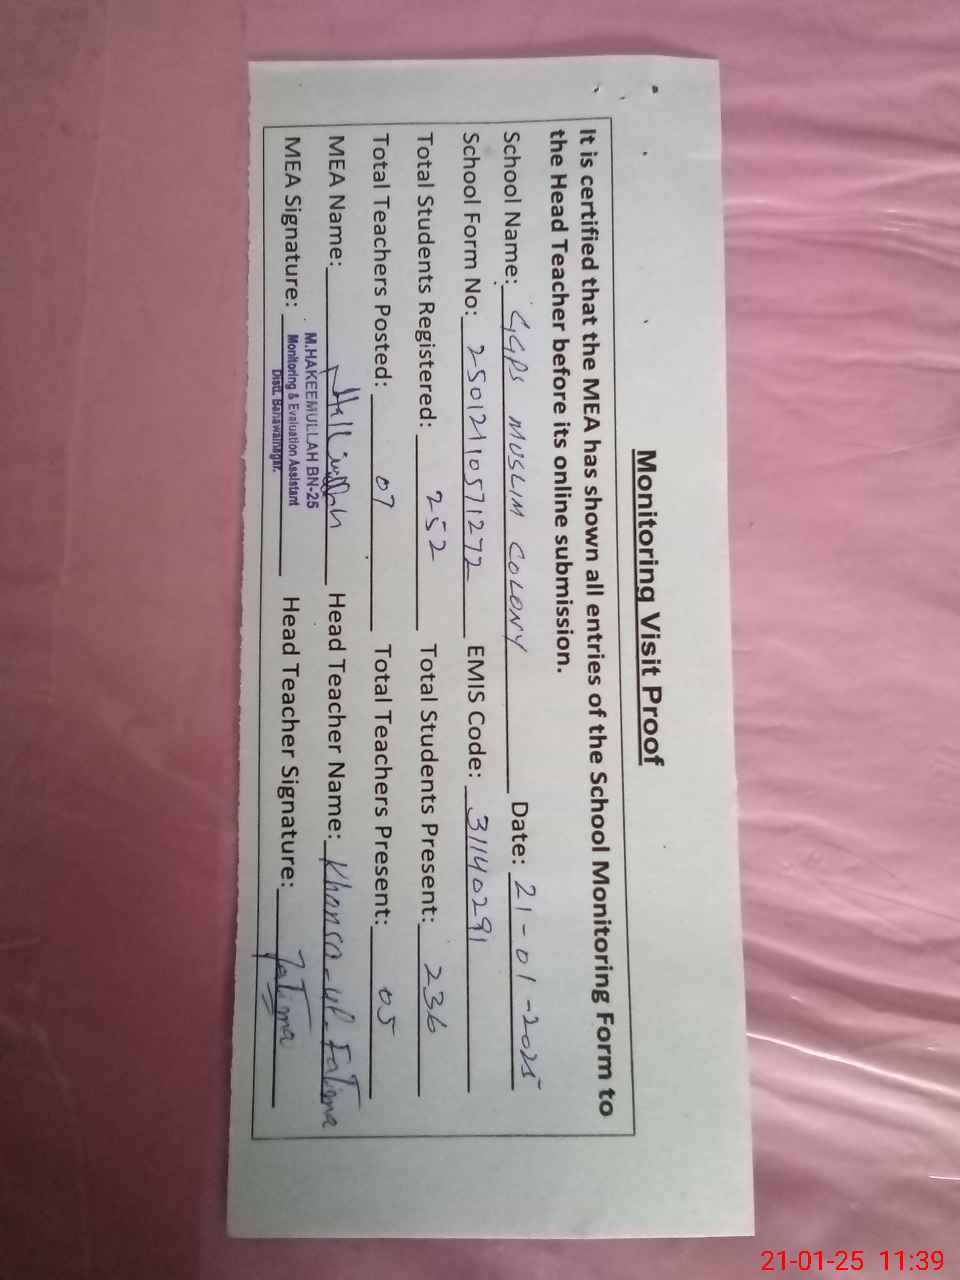 Monitoring Visit Proof
It is certified that the MEA has shown all entries of the School Monitoring Form to
the Head Teacher before its online submission.
School Name: GGPS MUSLIM COLONY Date: 21-01-2025
School Form No: 25012110571272 EMIS Code: 31140291
Total Students Registered: 252 Total Students Present: 236
Total Teachers Posted: 07 Total Teachers Present: 05
MEA Name: Head Teacher Name: Khansa-ul-Fatima
MEA Signature: Head Teacher Signature: Fatima
M.HAKEEMULLAH BN-25
Monitoring & Evaluation Assistant
Distt. Bahawalnagar.
21-01-25 11:39